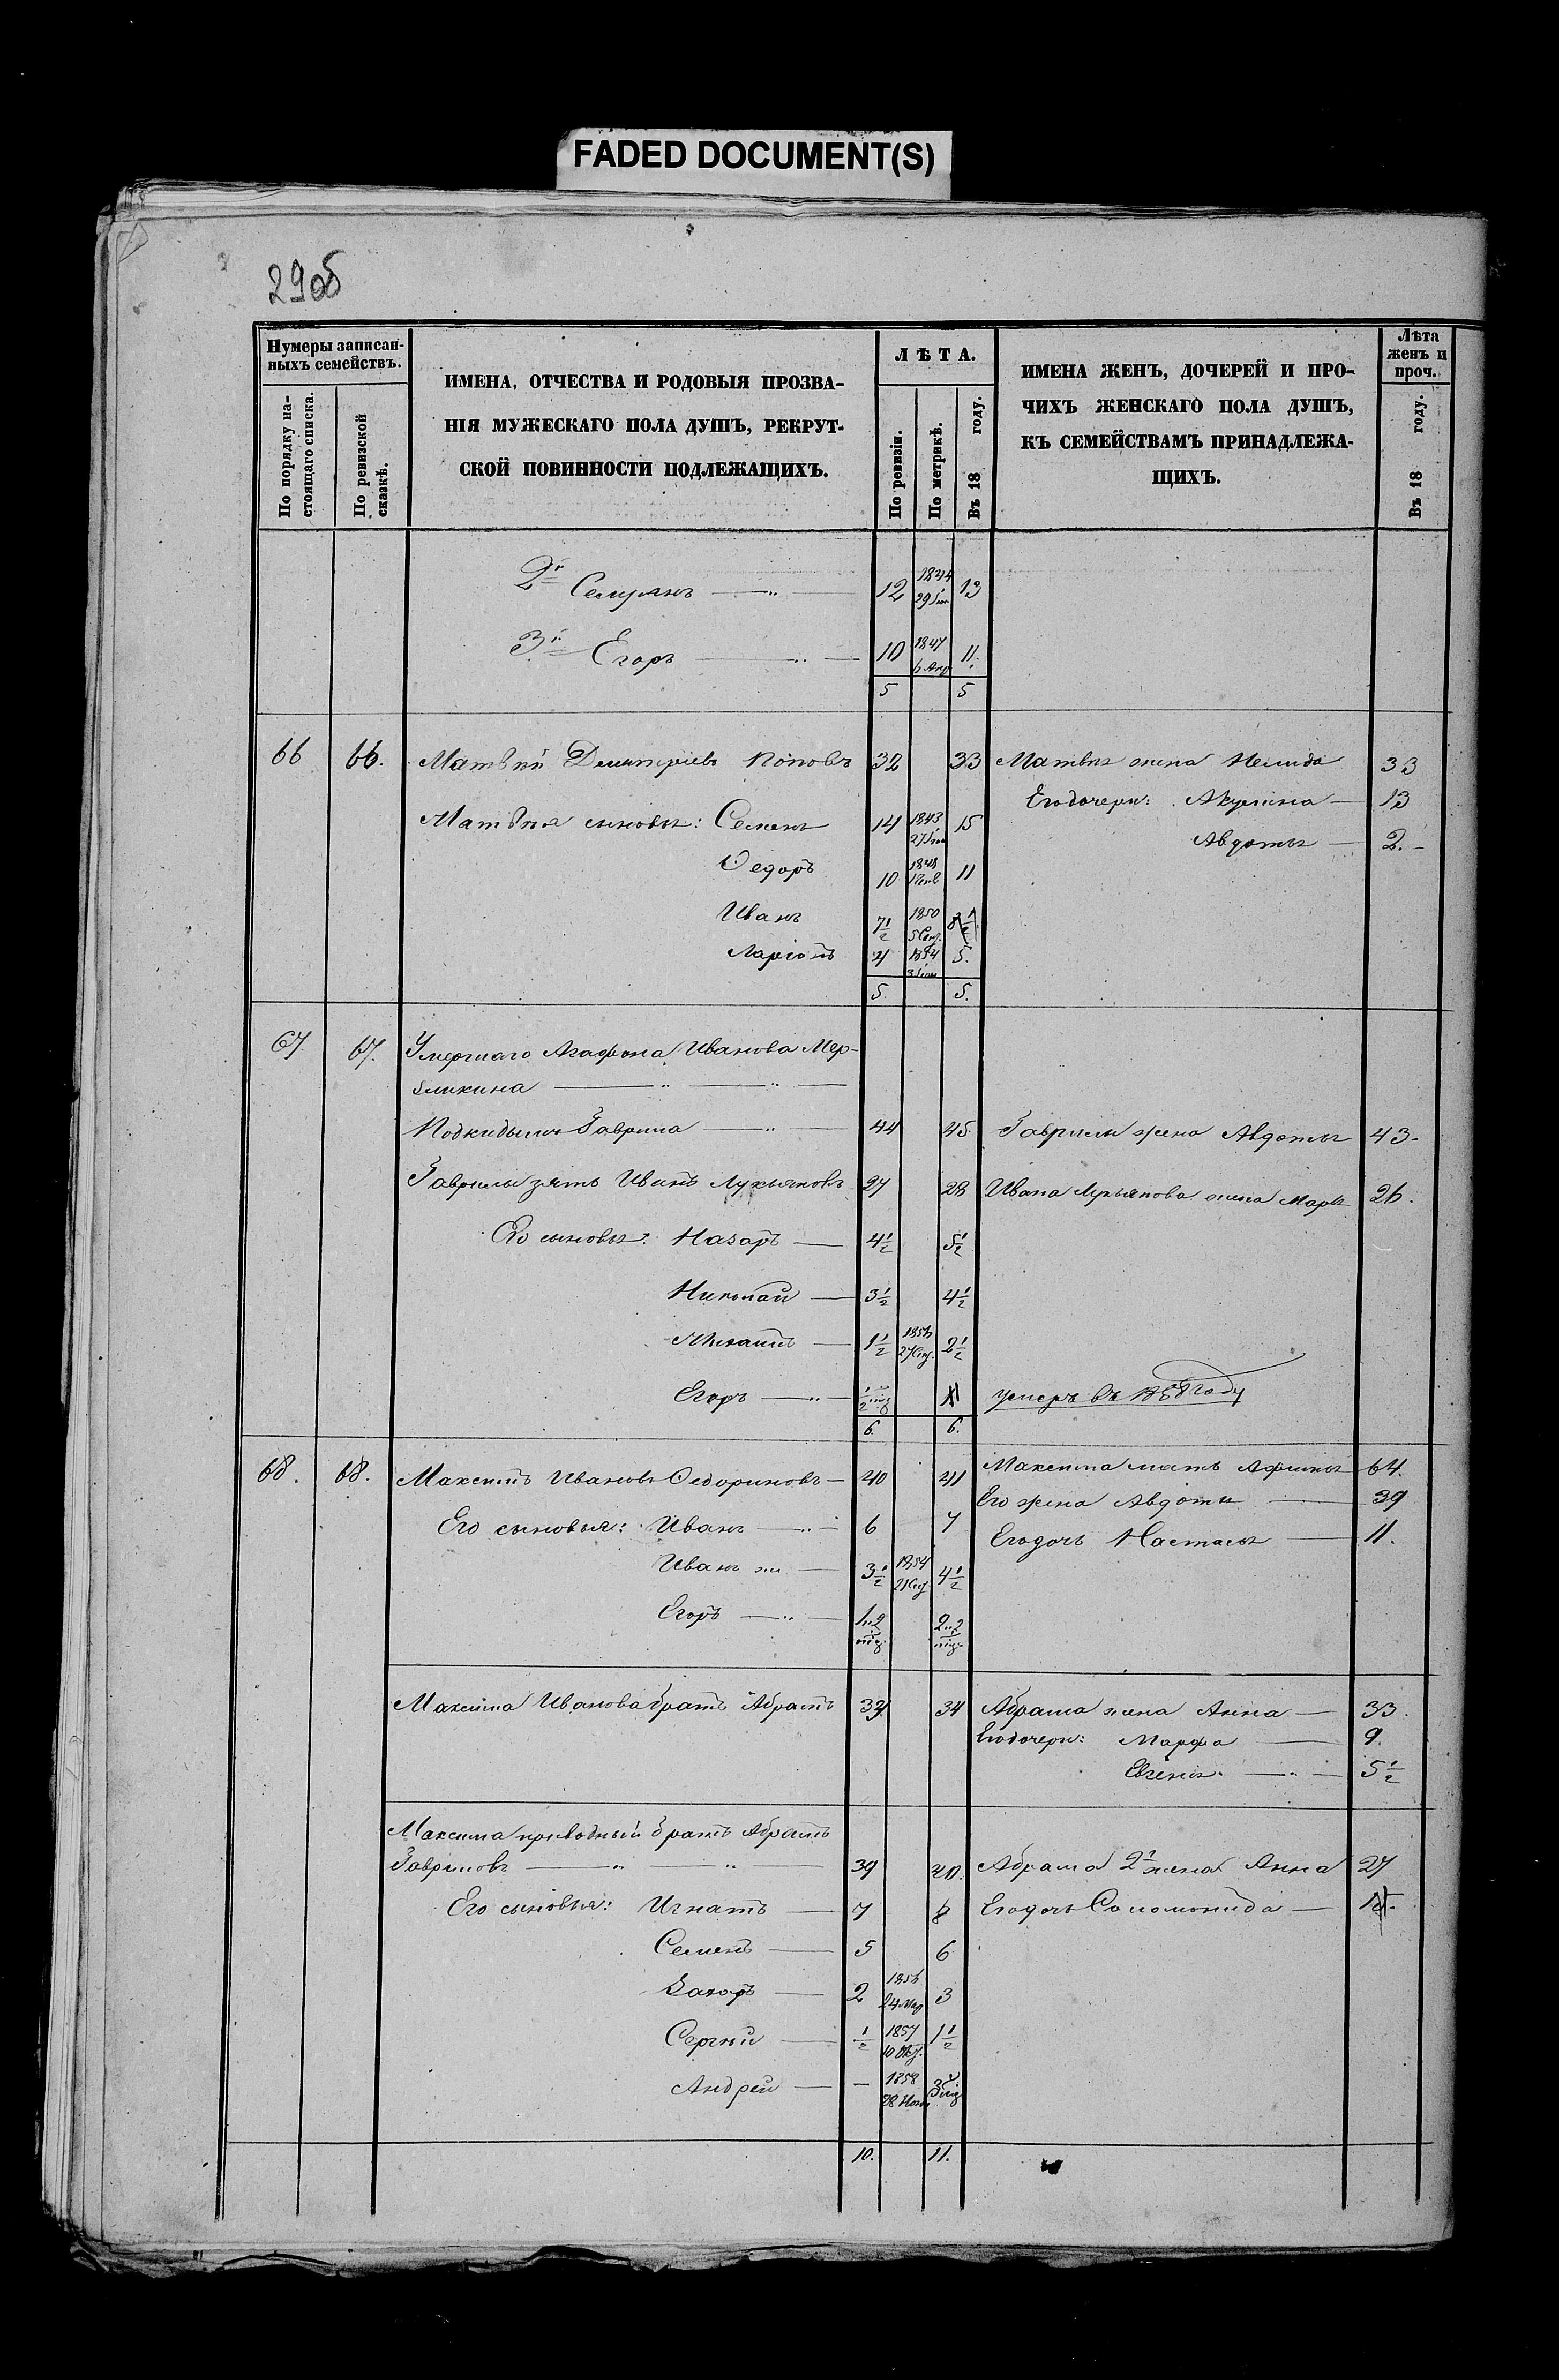 FADED DOCUMENT(S)
29об
Нумеры записан-
ныхъ семействъ.
По порядку на-
стоящаго списка.
По ревизской
сказкѣ.
ИМЕНА, ОТЧЕСТВА И РОДОВЫЯ ПРОЗВА-
НІЯ МУЖЕСКАГО ПОЛА ДУШЪ, РЕКРУТ-
СКОЙ ПОВИННОСТИ ПОДЛЕЖАЩИХЪ.
ЛѢТА.
По ревизіи.
По метрикѣ.
Въ 18 году.
ИМЕНА ЖЕНЪ, ДОЧЕРЕЙ И ПРО-
ЧИХЪ ЖЕНСКАГО ПОЛА ДУШЪ,
КЪ СЕМЕЙСТВАМЪ ПРИНАДЛЕЖА-
ЩИХЪ.
Лѣта
женъ и
проч.
Въ 18 году.
2й 12 13
3й Егоръ 10 1847 6 Апр 11.
5 5
66 66. Матвѣй Дмитріевъ Поповъ 32 33 Матвѣя жена 33
Матвѣя сыновья: Семенъ 14 1843 15 Его дочери: Акулина 13
Авдотья 2.
Ѳедоръ 10 1848 11
Иванъ 7½ 1850 8½
Ларіонъ 4 1854 5.
5. 5.
67 67. Умершаго Агафона Иванова Мер-
Подкидышъ Гаврила 44 45. Гаврилы жена Авдотья 43.
Гаврилы зять Иванъ Лукьяновъ 27 28 Ивана Лукьянова жена Марья 26.
Его сыновья: Назаръ 4½ 5½
Николай 3½ 4½
1½ 1856 2½
Егоръ умеръ въ 1858 году
6. 6.
68. 68. Максимъ Ивановъ Ѳедориновъ 40 41 Максима мать 64.
Его жена Авдотья 39
Его сыновья: Иванъ 6 7 Его дочь Настасья 11.
Иванъ же 3½ 1854 4½
Егоръ
Максима Иванова братъ Абрамъ 33 34 Абрама жена Анна 33.
Его дочери: Марфа 9.
5½
Максима приводный братъ Абрамъ
Гавриловъ 39 40. Абрама 2я жена Анна 27
Его сыновья: Игнатъ 7 8 Его дочь Соломонида
Семенъ 5 6
Захаръ 2 1856 24 Мар 3
Сергѣй ½ 1857 1½
Андрей — 1858 28 Нояб
10. 11.